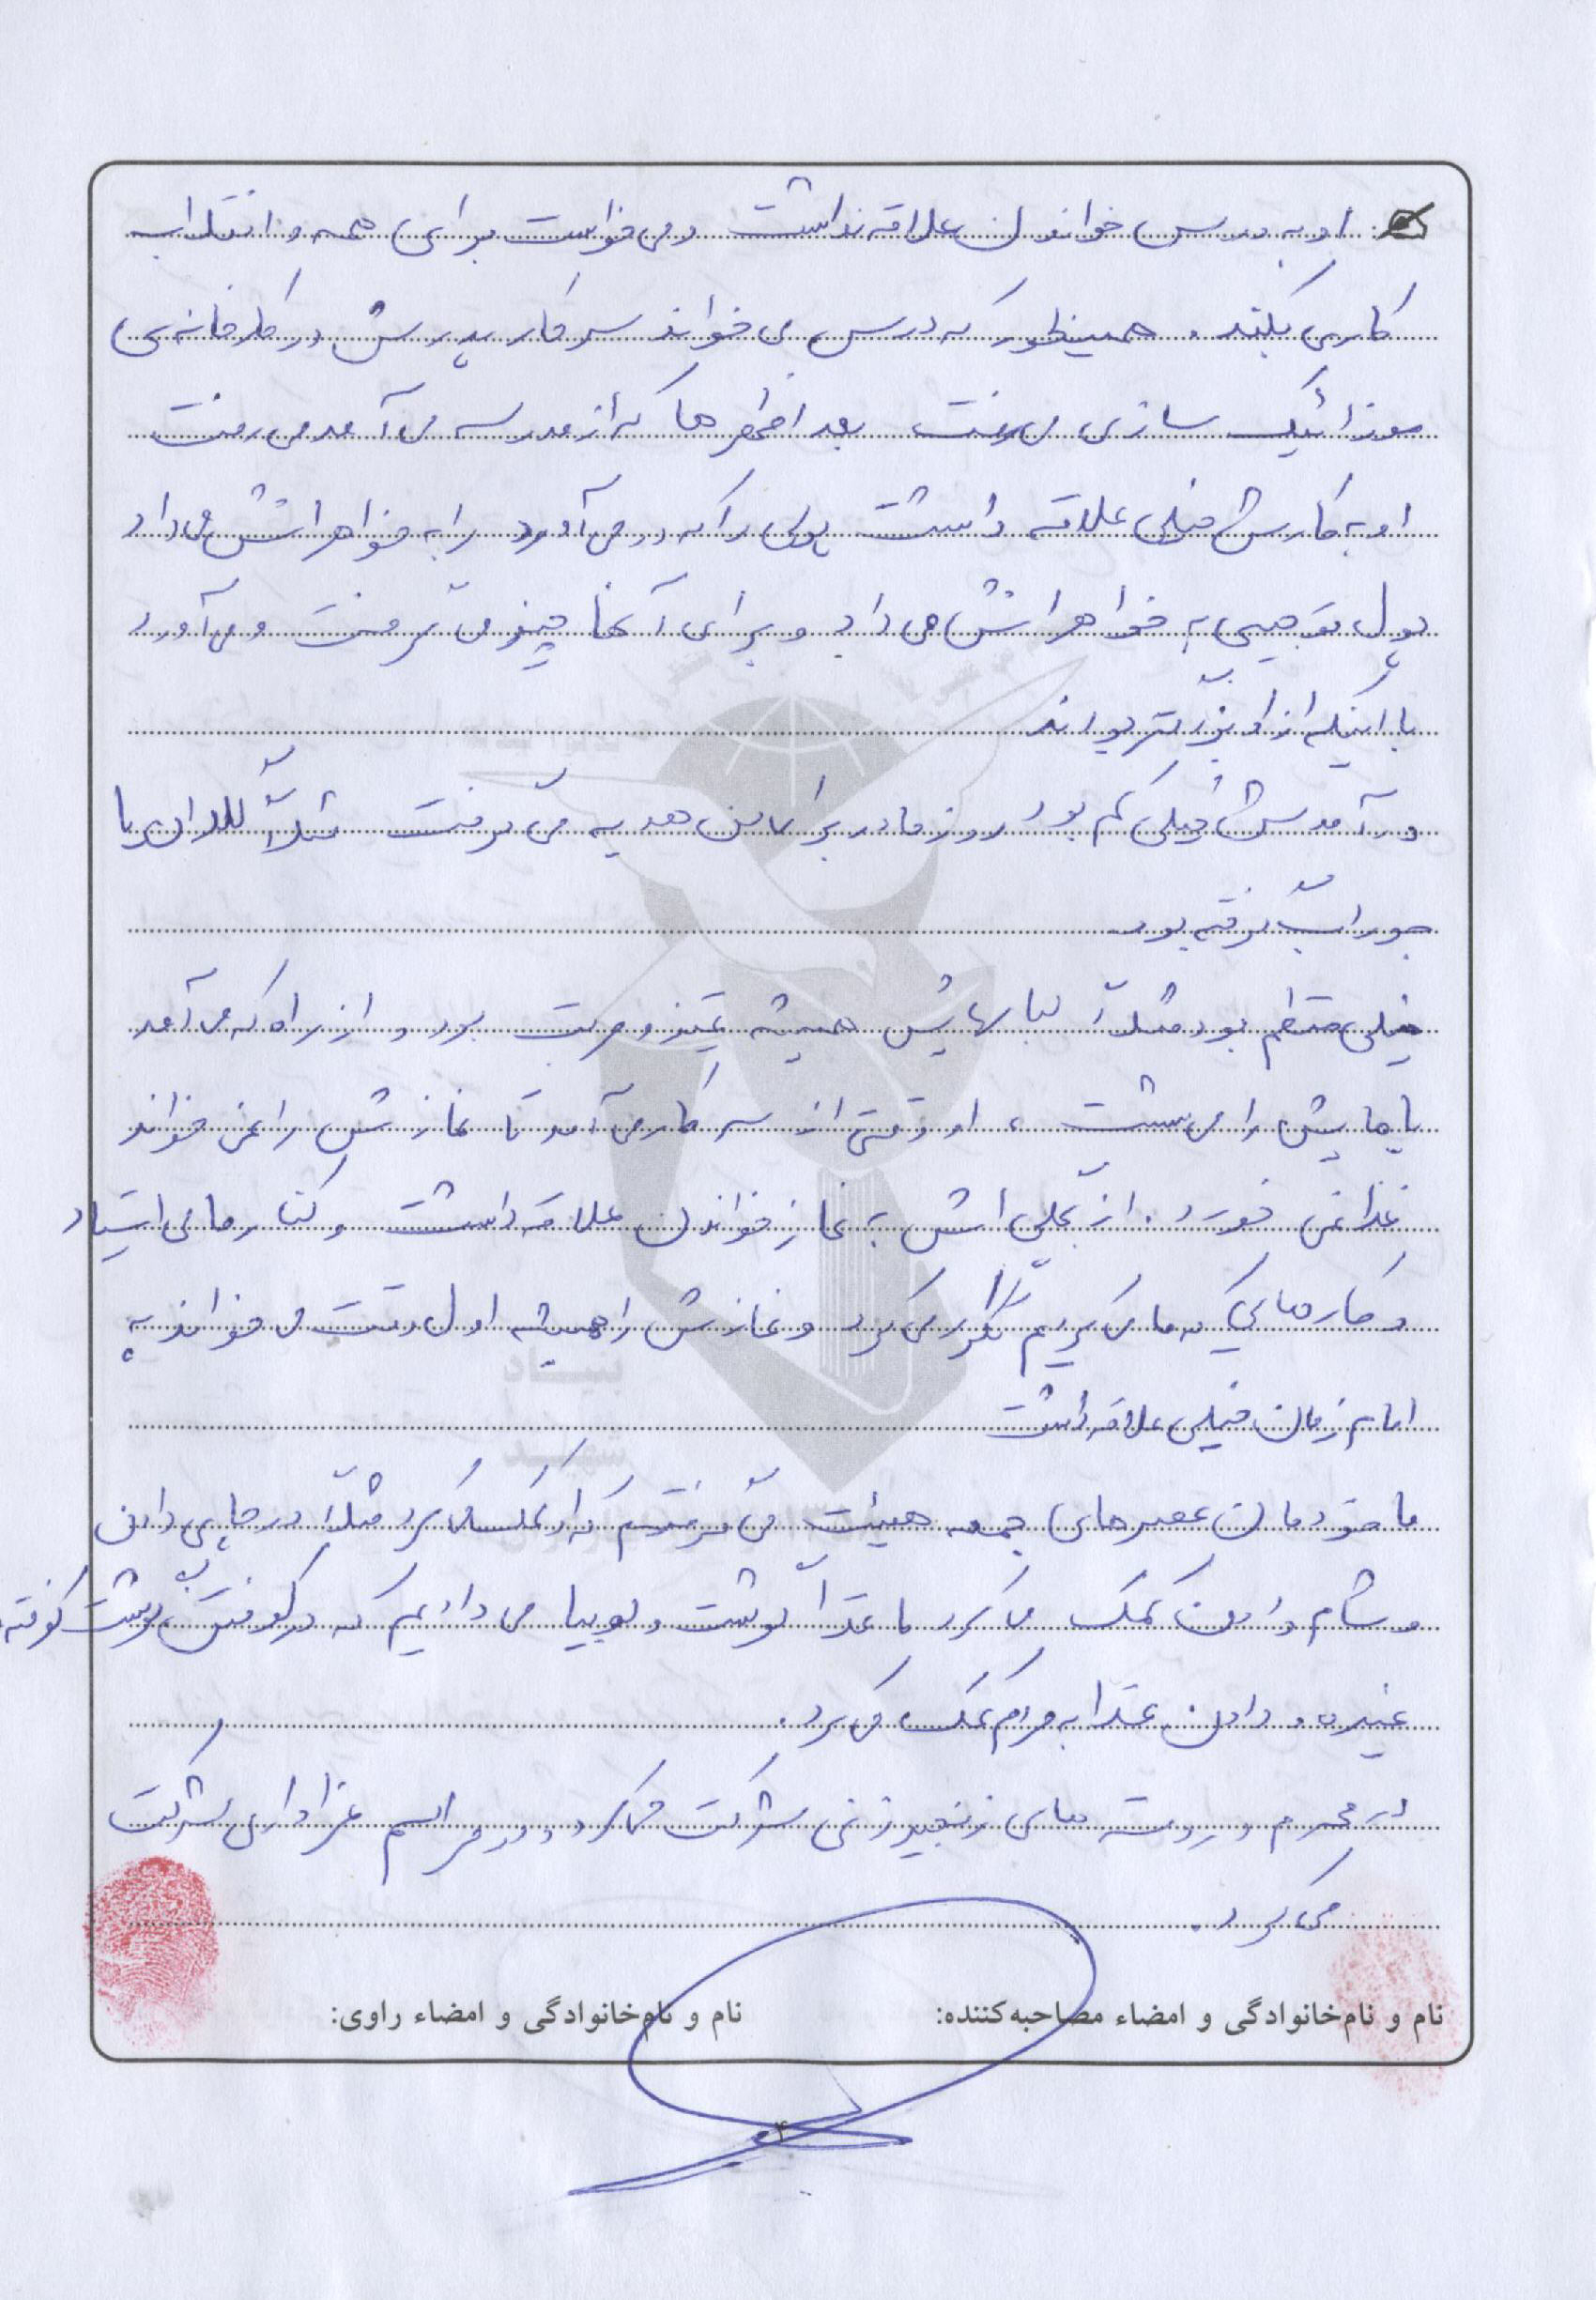 او به درس خواندن علاقه نداشت و می خواست برای همه و انقلاب
کاری بکند. همینطور که درس می خواند سر کار پدرش در کارخانه ی
موزائیک سازی می رفت بعد از ظهرها که از مدرسه می آمد می رفت
او به کارش خیلی علاقه داشت پولی را که در می آورد را به خواهرانش می داد
پول توجیبی به خواهرانش می داد و برای آنها چیز می گرفت و می آورد
با اینکه از او بزرگتر بودند
درآمدش خیلی کم بود روز مادر برای من هدیه می گرفت مثلاً گلدان یا
جوراب گرفته بود
خیلی منظم بود مثلاً لباسهایش همیشه تمیز و مرتب بود و از راه که می آمد
پاهایش را می شست، او وقتی از سر کار می آمد تا نمازش را نمی خواند
غذا نمی خورد. از بچگی اش به نماز خواندن علاقه داشت و کنار ما می ایستاد
و کارهایی که ما می کردیم تکرار می کرد و نمازش را همیشه اول وقت می خواند به
امام زمان خیلی علاقه داشت
ما خودمان عصرهای جمعه هیئت می گرفتیم که او کمک می کرد مثلاً در چایی دادن
و شام دادن کمک می کرد ما غذا گوشت و لوبیا می دادیم که در کوفتن گوشت کوفته
غیره و دادن غذا به مردم کمک می کرد.
در محرم در دسته های زنجیر زنی شرکت می کرد و در مراسم عزاداری شرکت
می کرد.
نام و نام‌خانوادگی و امضاء مصاحبه‌کننده: نام و نام‌خانوادگی و امضاء راوی:
۴